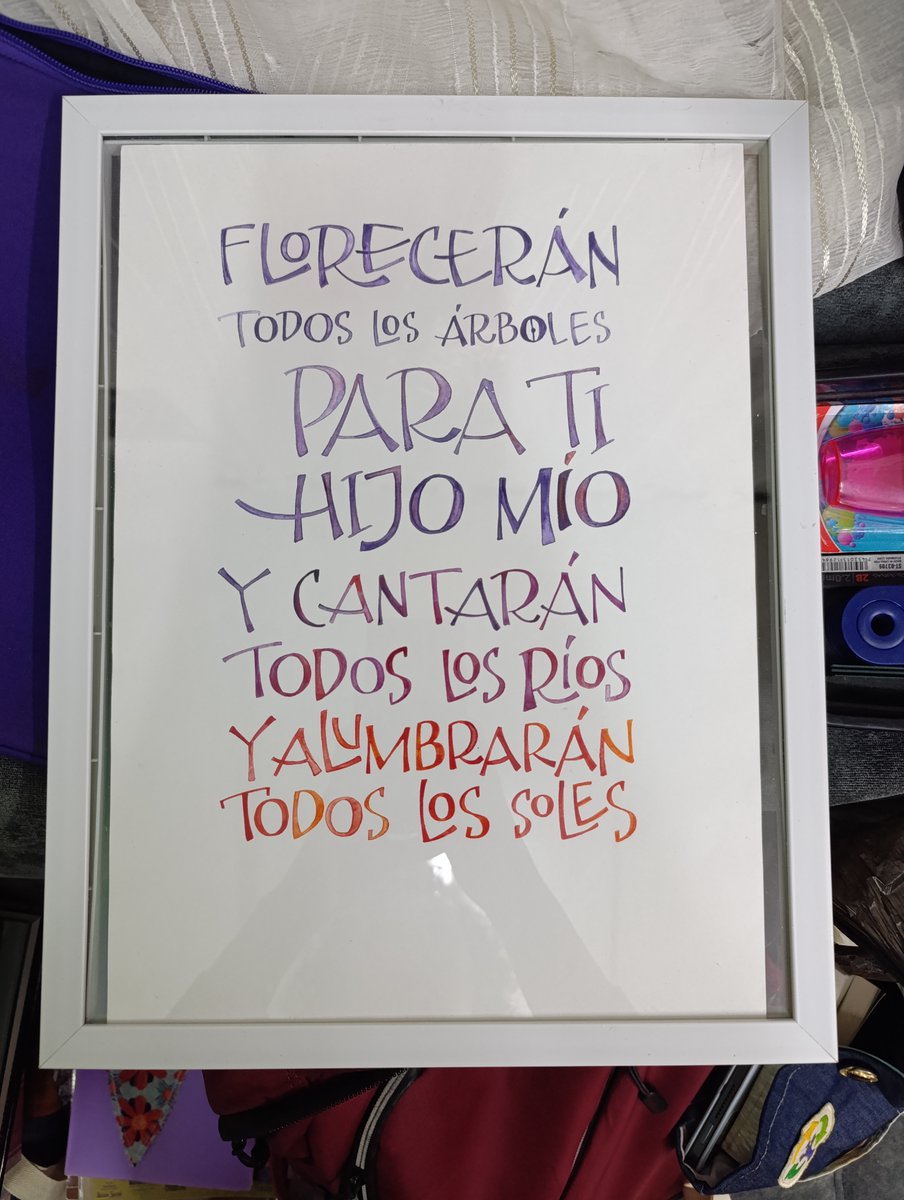 FLORECERÁN
TODOS LOS ÁRBOLES
PARA TI
HIJO MÍO
Y CANTARÁN
TODOS LOS RÍOS
Y ALUMBRARÁN
TODOS LOS SOLES
2B 2.0m
ST-03709